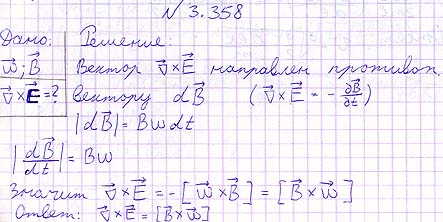 N 3.358
Дано: Решение:
w⃗; B⃗ Вектор ∇⃗×E⃗ направлен противоп.
∇⃗×E⃗=? вектору dB⃗ (∇⃗×E⃗ = -∂B⃗/∂t)
|dB⃗| = Bwdt
|dB⃗/dt| = Bw
Значит ∇⃗×E⃗ = -[w⃗×B⃗] = [B⃗×w⃗]
Ответ: ∇⃗×E⃗ = [B⃗×w⃗]